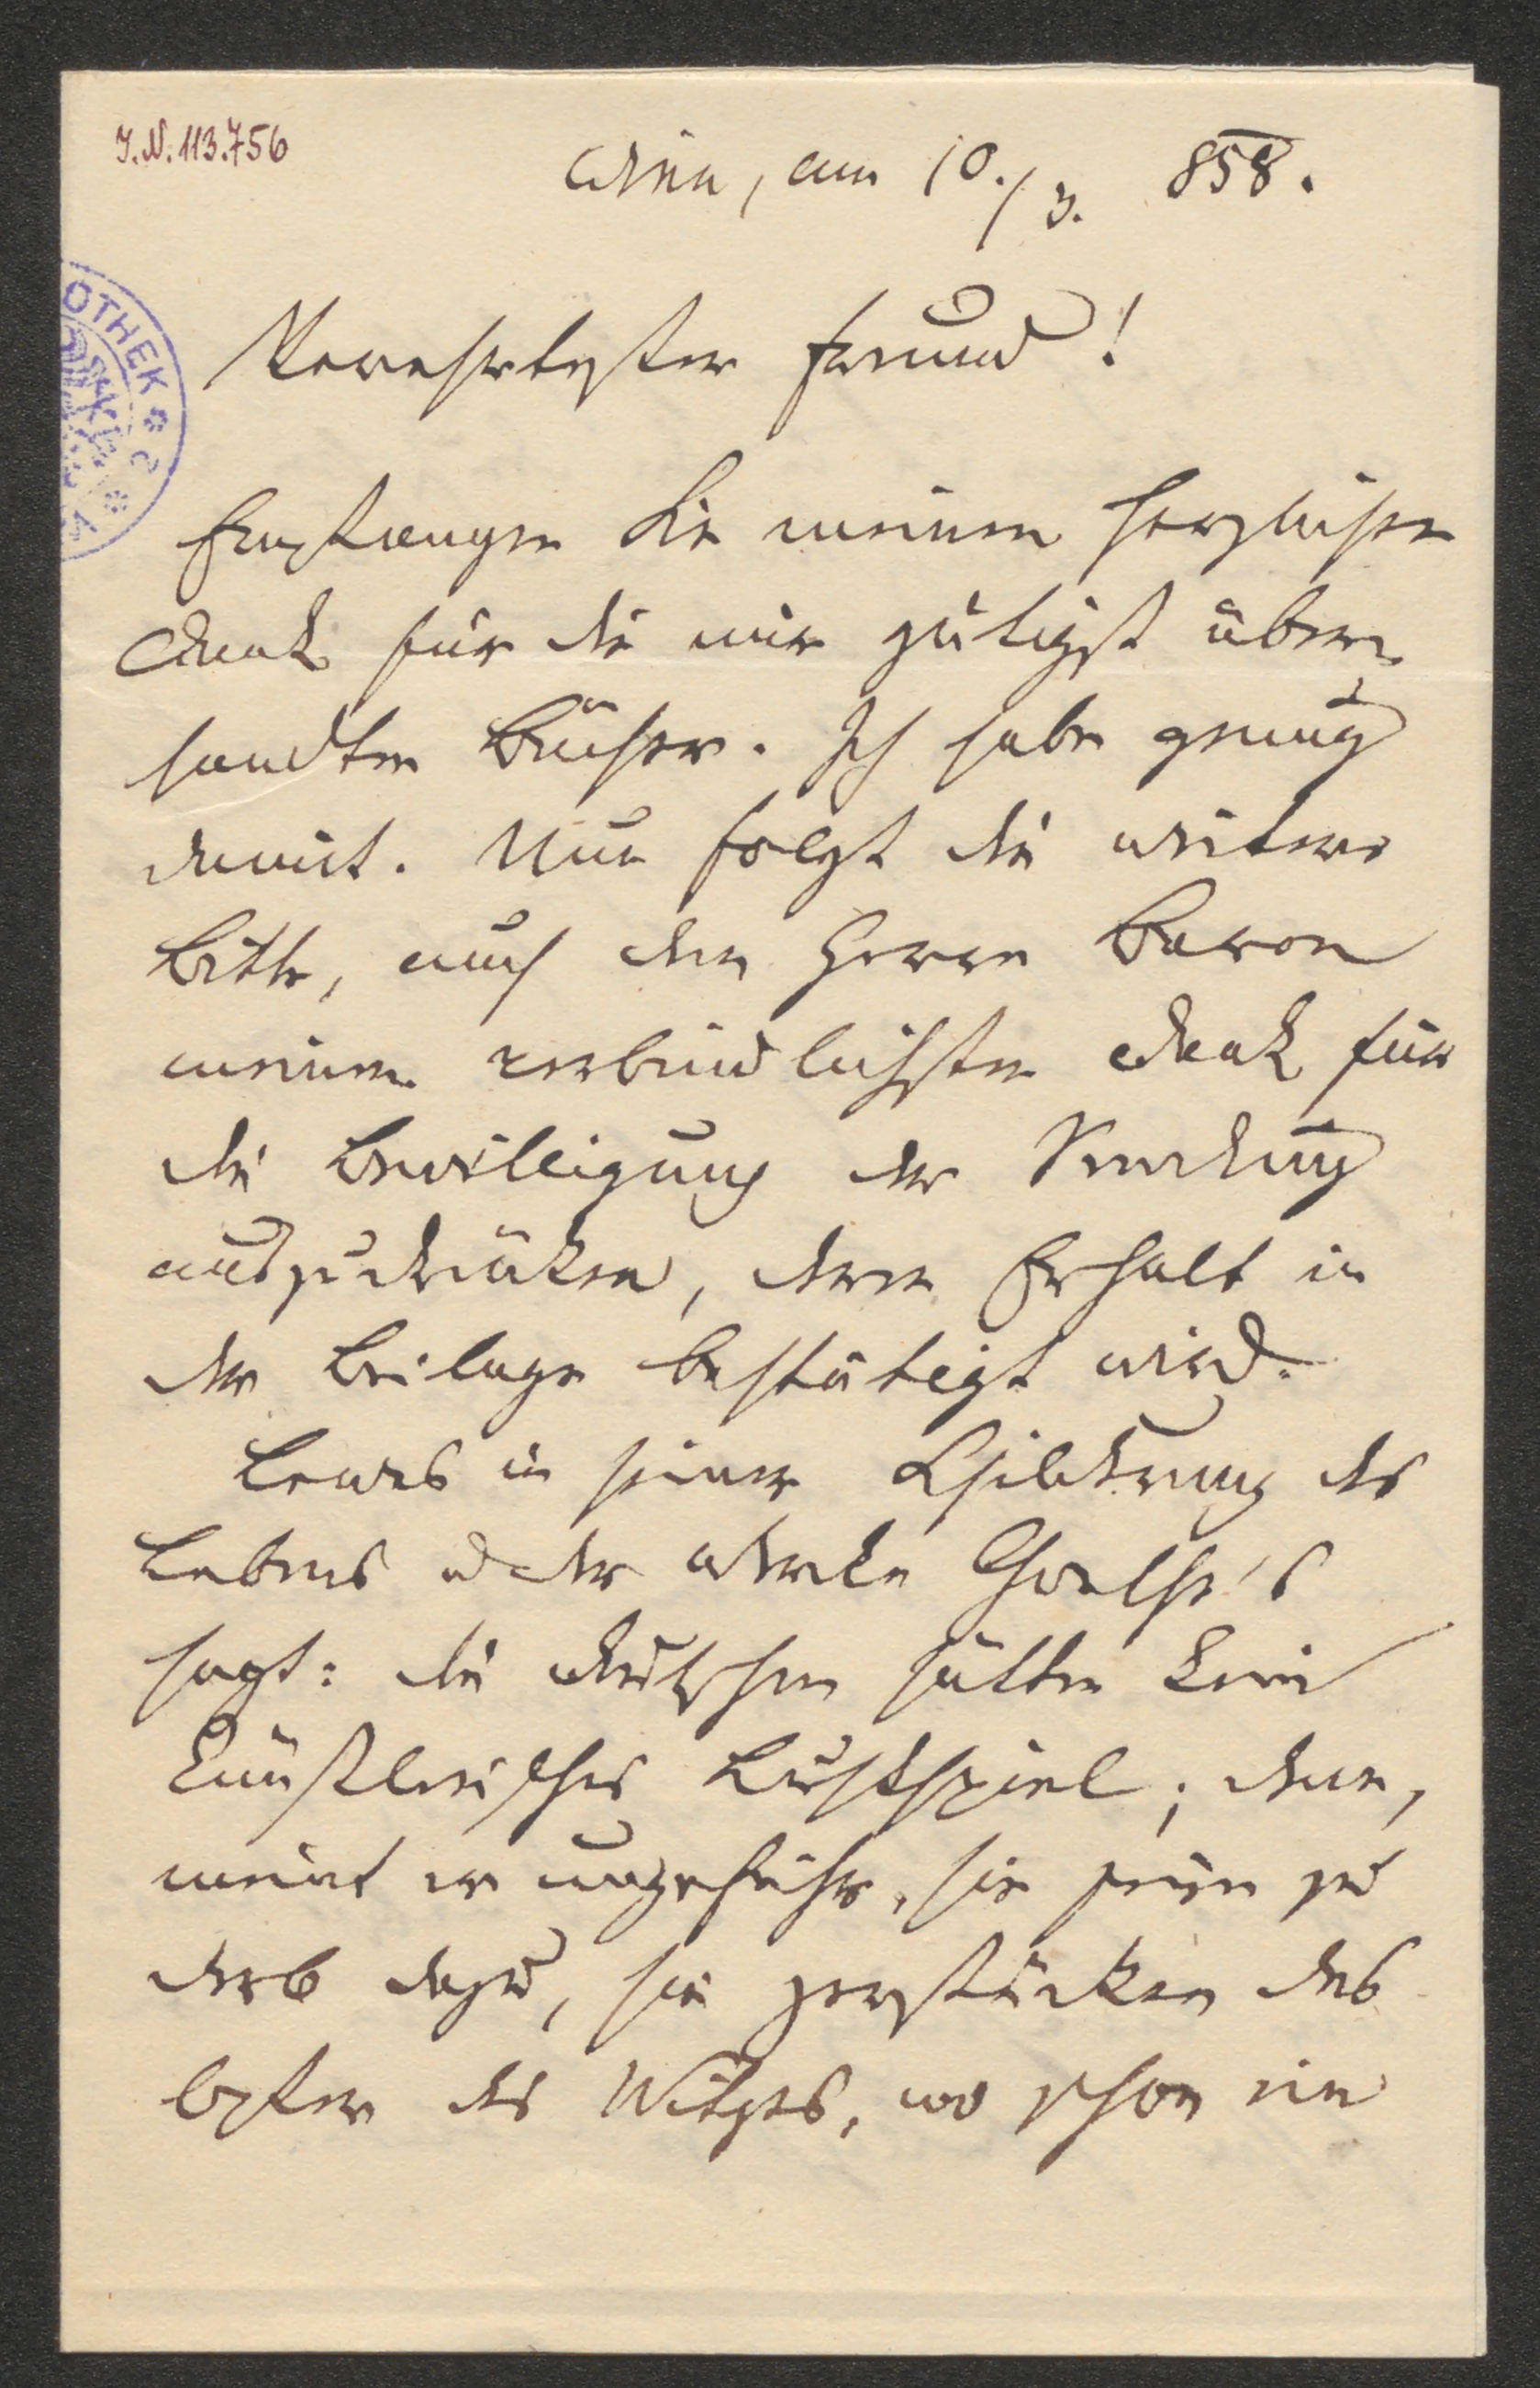 I.N. 113.756
Wien, am 10./3. 858.
OTHEK
Verehrtester Freund!
Empfangen Sie meinen herzlichsten
Dank für die mir gütigst über-
sandten Bücher. Ich habe genug
damit. Nun folgt die weitere
Bitte, auch dem Herrn Baron
meinen verbindlichsten Dank für
die Bewilligung der Sendung
auszudrücken, deren Erhalt in
der Beilage bestätigt wird.
Lewes in seiner Schilderung des
Lebens u der Werke Goethe's
sagt: die Deutschen hätten kein
künstlerisches Lustspiel; denn,
meint er ungefähr, sie seien zu
derb dazu, sie zerstücken das
Opfer des Witzes, wo schon ein